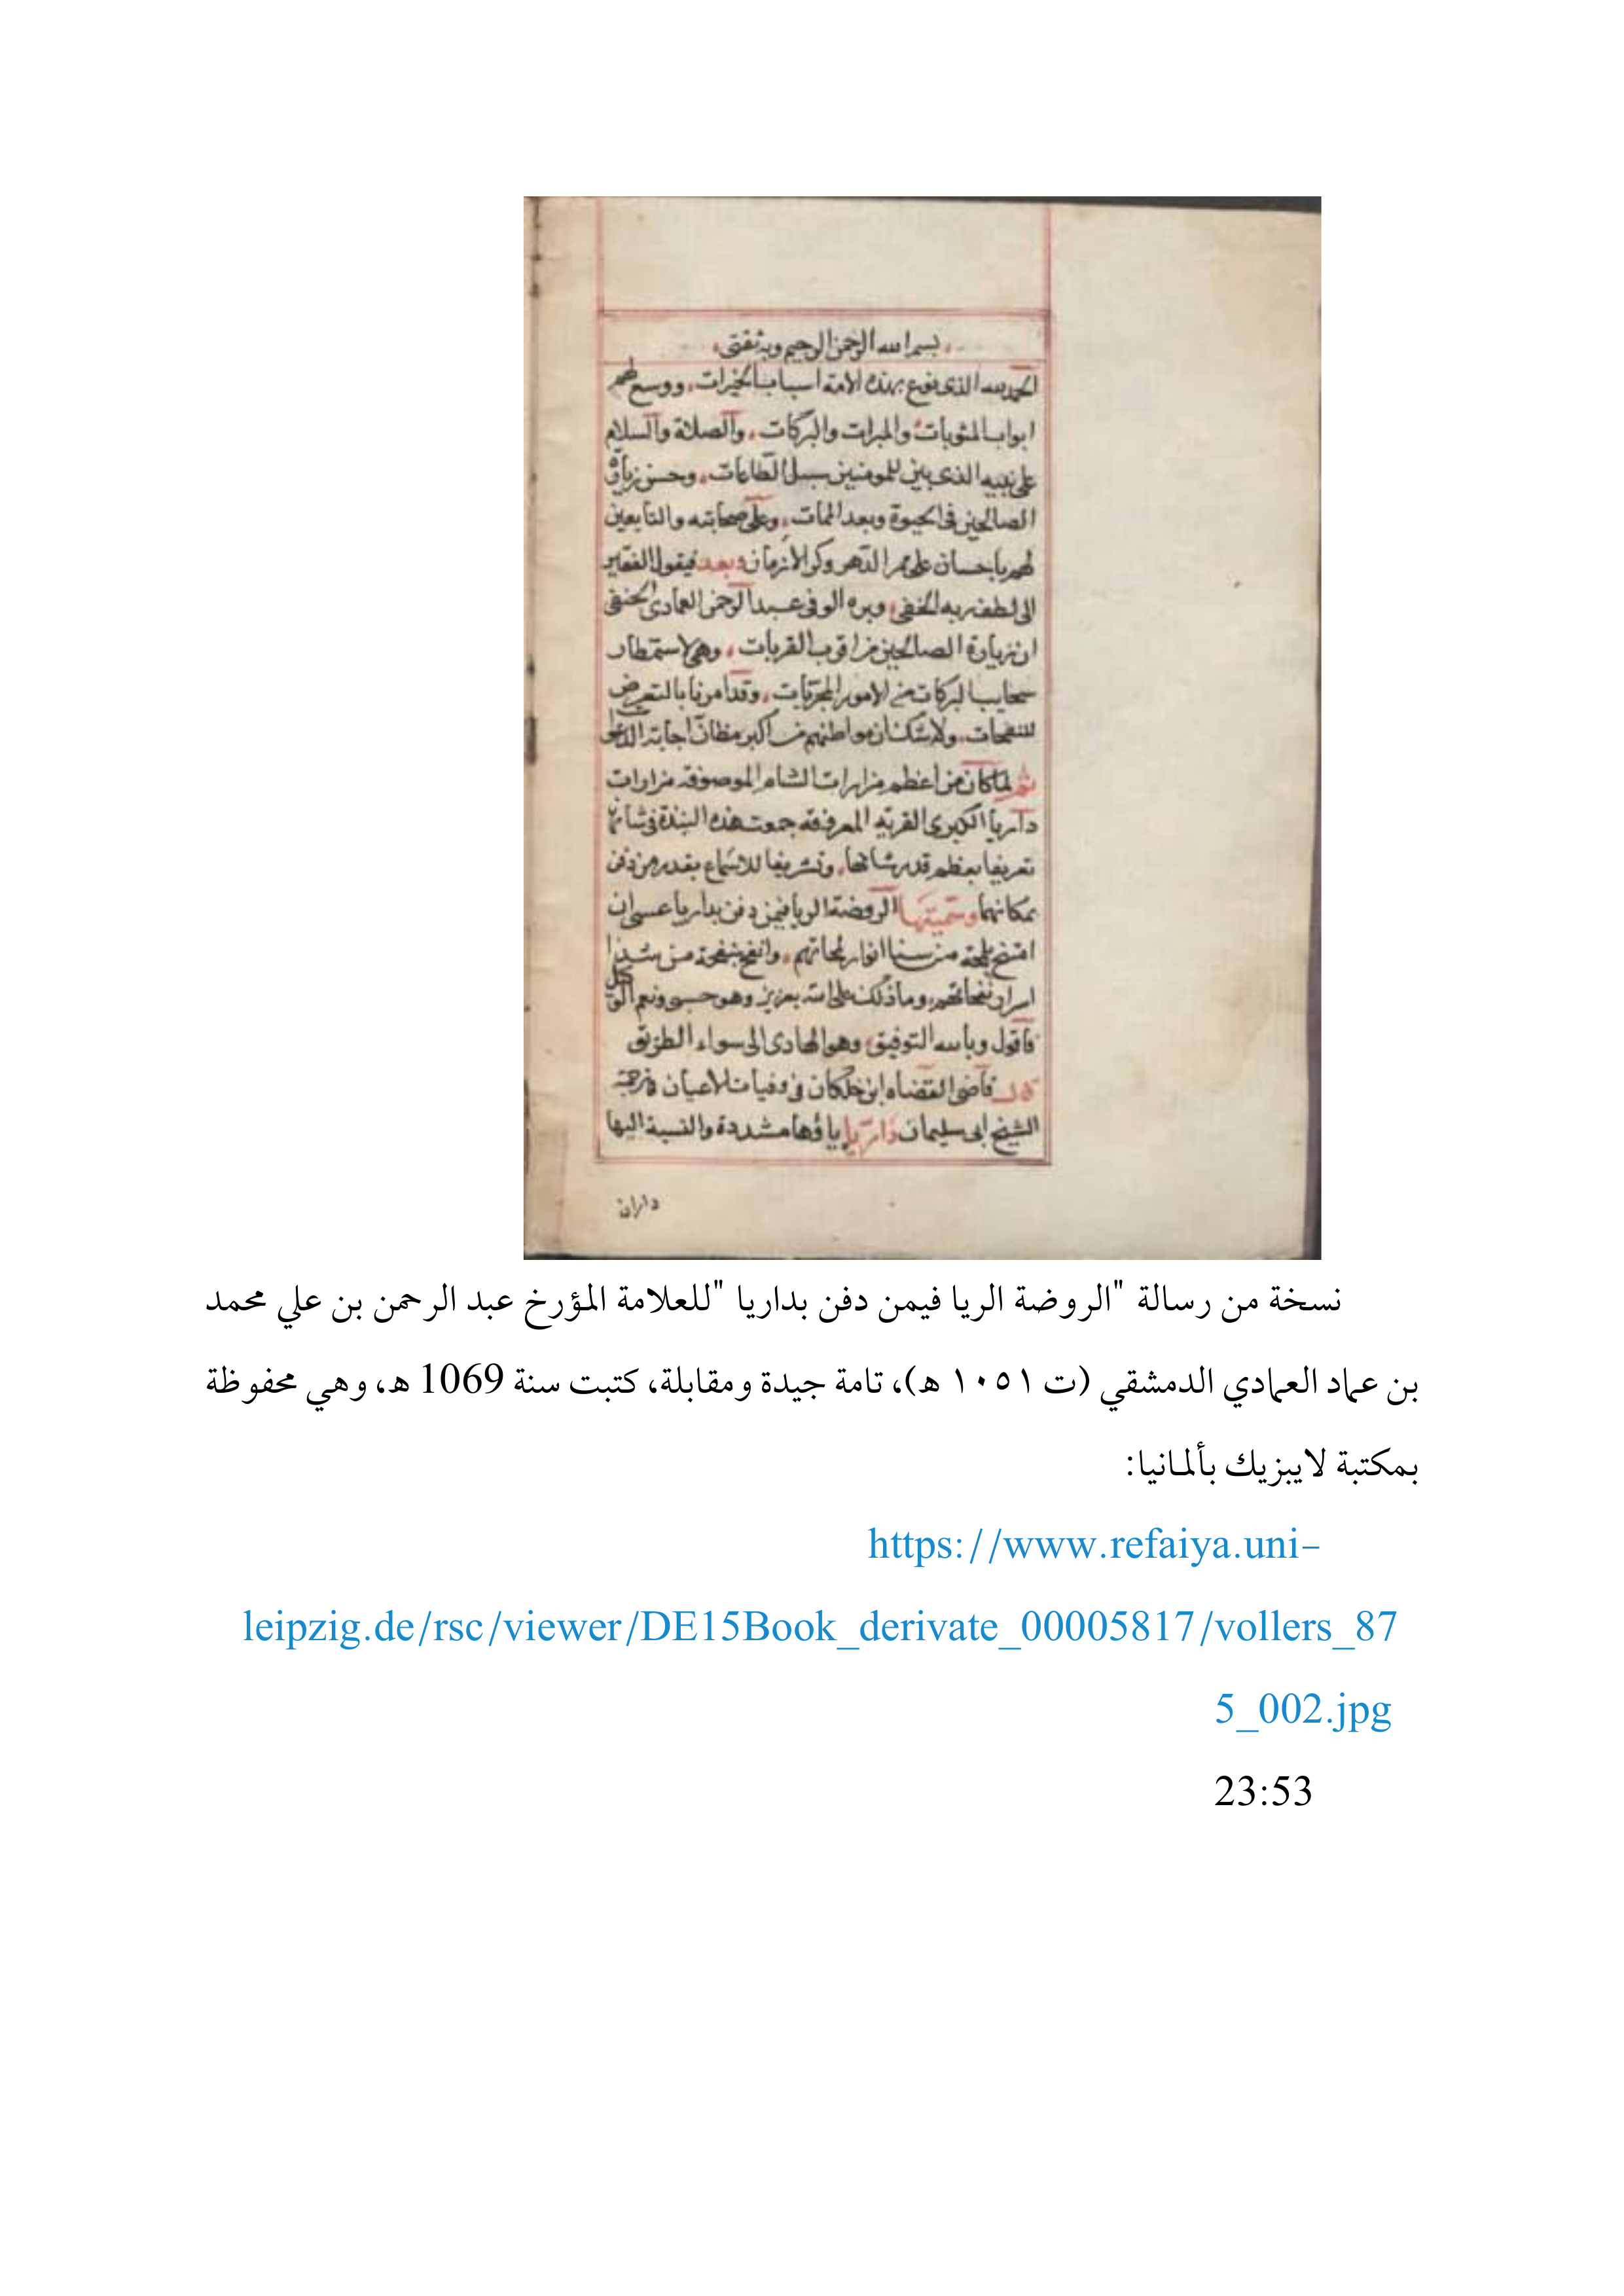 بسم الله الرحمن الرحيم وبه ثقتي
الحمد لله الذي نوع بهذه الامة اسباب الخيرات، ووسع لهم
ابواب المثوبات والمبرات والبركات، والصلاة والسلام
على نبيه الذي بين للمومنين سبيل الطاعات، وحسن زيارة
الصالحين في الحيوة وبعد الممات، وعلى صحابته والتابعين
لهم باحسان على ممر الدهر وكر الازمان وبعد فيقول الفقير
الى لطف ربه الخفي، وبره الوفي عبد الرحمن العمادي الحنفي
ان زيارة الصالحين من اقرب القربات، وهي لاستمطار
سحايب البركات من الامور المجربات، وقد امرنا بالتعرض
للنفحات، ولا شك ان مواطنهم من اكبر مظان اجابة الدعوات
ثم لما كان من اعظم مزارات الشام الموصوفة مزارات
داريا الكبرى القرية المعروفة جمعت هذه النبذة في شانها
تعريفا بعظم قدر شانها، وتشريفا للاسماع بقدر من دفن
بمكانها وسميتها الروضة الريا فيمن دفن بداريا عسى ان
بلمحة من سنا انوار لمحاتهم، وانفح بنفحة من شذا
اسرار نفحاتهم، وما ذلك على الله بعزيز وهو حسبي ونعم الوكيل
فاقول وبالله التوفيق، وهو الهادي الى سواء الطريق
قال قاضي القضاه ابن خلكان في وفيات الاعيان في ترجمة
الشيخ ابي سليمان داريا ياؤها مشددة والنسبة اليها
داران
نسخة من رسالة "الروضة الريا فيمن دفن بداريا "للعلامة المؤرخ عبد الرحمن بن علي محمد
بن عماد العمادي الدمشقي (ت ١٠٥١ هـ)، تامة جيدة ومقابلة، كتبت سنة 1069 هـ، وهي محفوظة
بمكتبة لايبزيك بألمانيا:
https://www.refaiya.uni-
leipzig.de/rsc/viewer/DE15Book_derivate_00005817/vollers_87
5_002.jpg
23:53